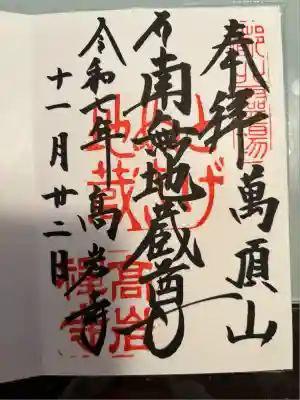 奉拝 萬頂山
南無地蔵尊
令和七年 髙岩寺
十一月廿二日
とげ
ぬき
地蔵
髙岩
禅寺